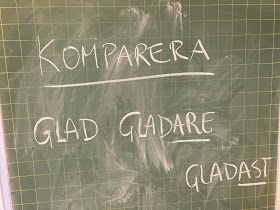 KOMPARERA
GLAD GLADARE
GLADAST